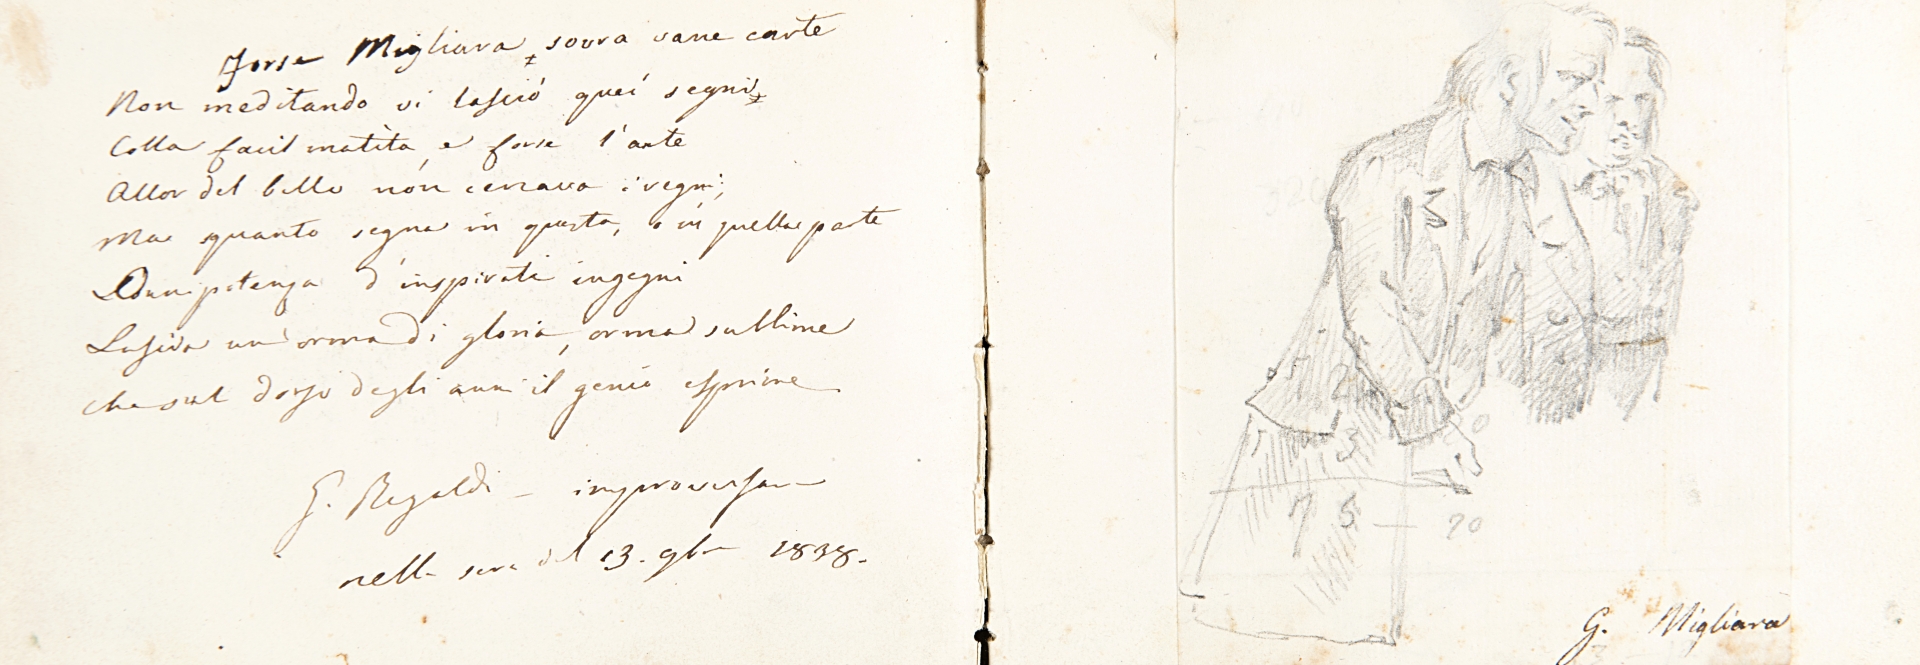 Forse Migliara sovra vane carte
Non meditando vi lasciò quei segni
Colla facil matita, e forse l'arte
Allor del bello non cercava i regni;
Ma quanto segna in questa, o in quella parte
Onnipotenza d'inspirati ingegni
Lascia un'orma di gloria, orma sublime
Che sul dorso degli anni il genio esprime
G. Regaldi - improvvisava
nella sera del 13. 9bre 1838.
5 2
3 0
7 5 — 70
G. Migliara